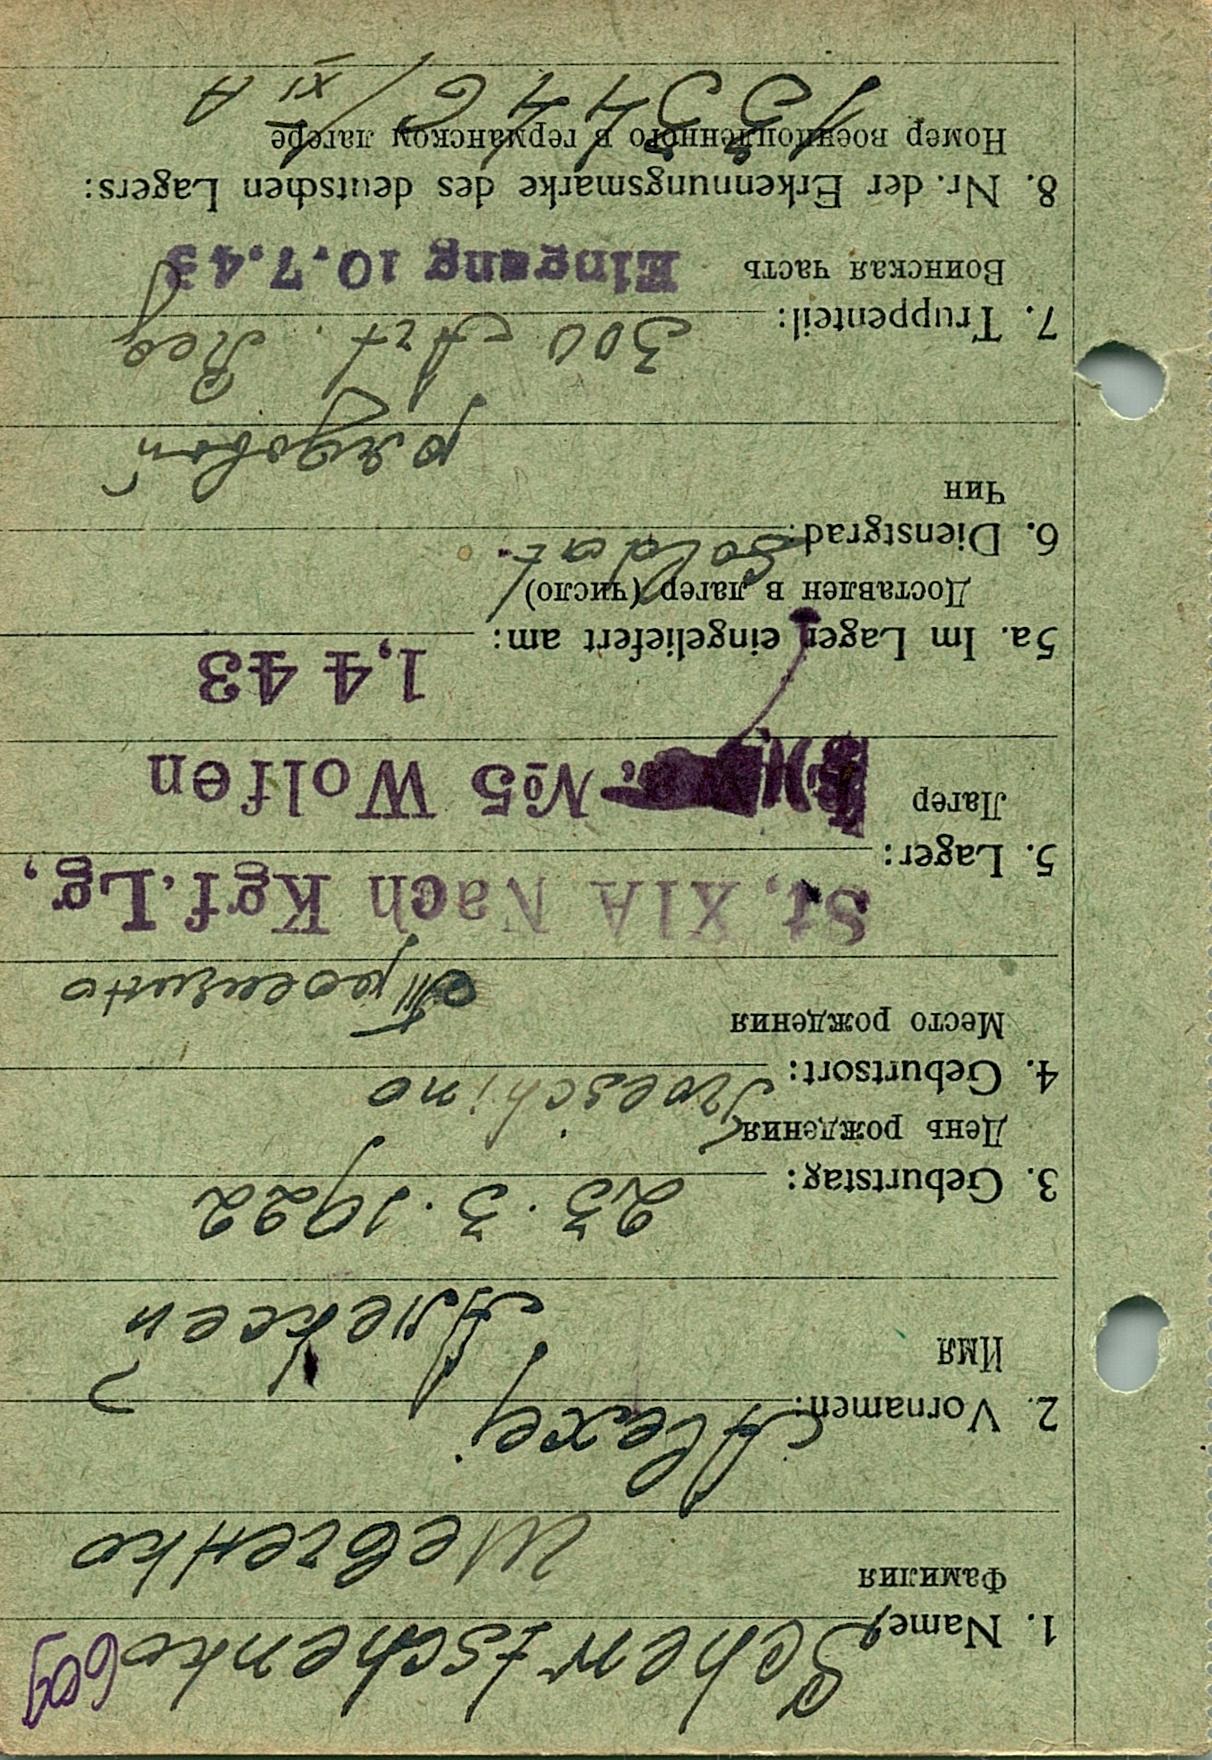 1. Name: Schewtschenko
Фамилия Шевченко
2. Vornamen: Alexej
Имя Алексей
3. Geburtstag: 23.3.1922
День рождения
4. Geburtsort:
Место рождения
5. Lager: St. XIA Nach Kgf.Lg,
Лагер №5 Wolfen
5a. Im Lager eingeliefert am: 1,4 43
Доставлен в лагер (число)
6. Dienstgrad: Soldat.
Чин рядовой
7. Truppenteil: 300 Art. Reg
Воинская часть Eingang 10.7.43
8. Nr. der Erkennungsmarke des deutschen Lagers:
Номер военнопленного в германском лагере
/ XI A